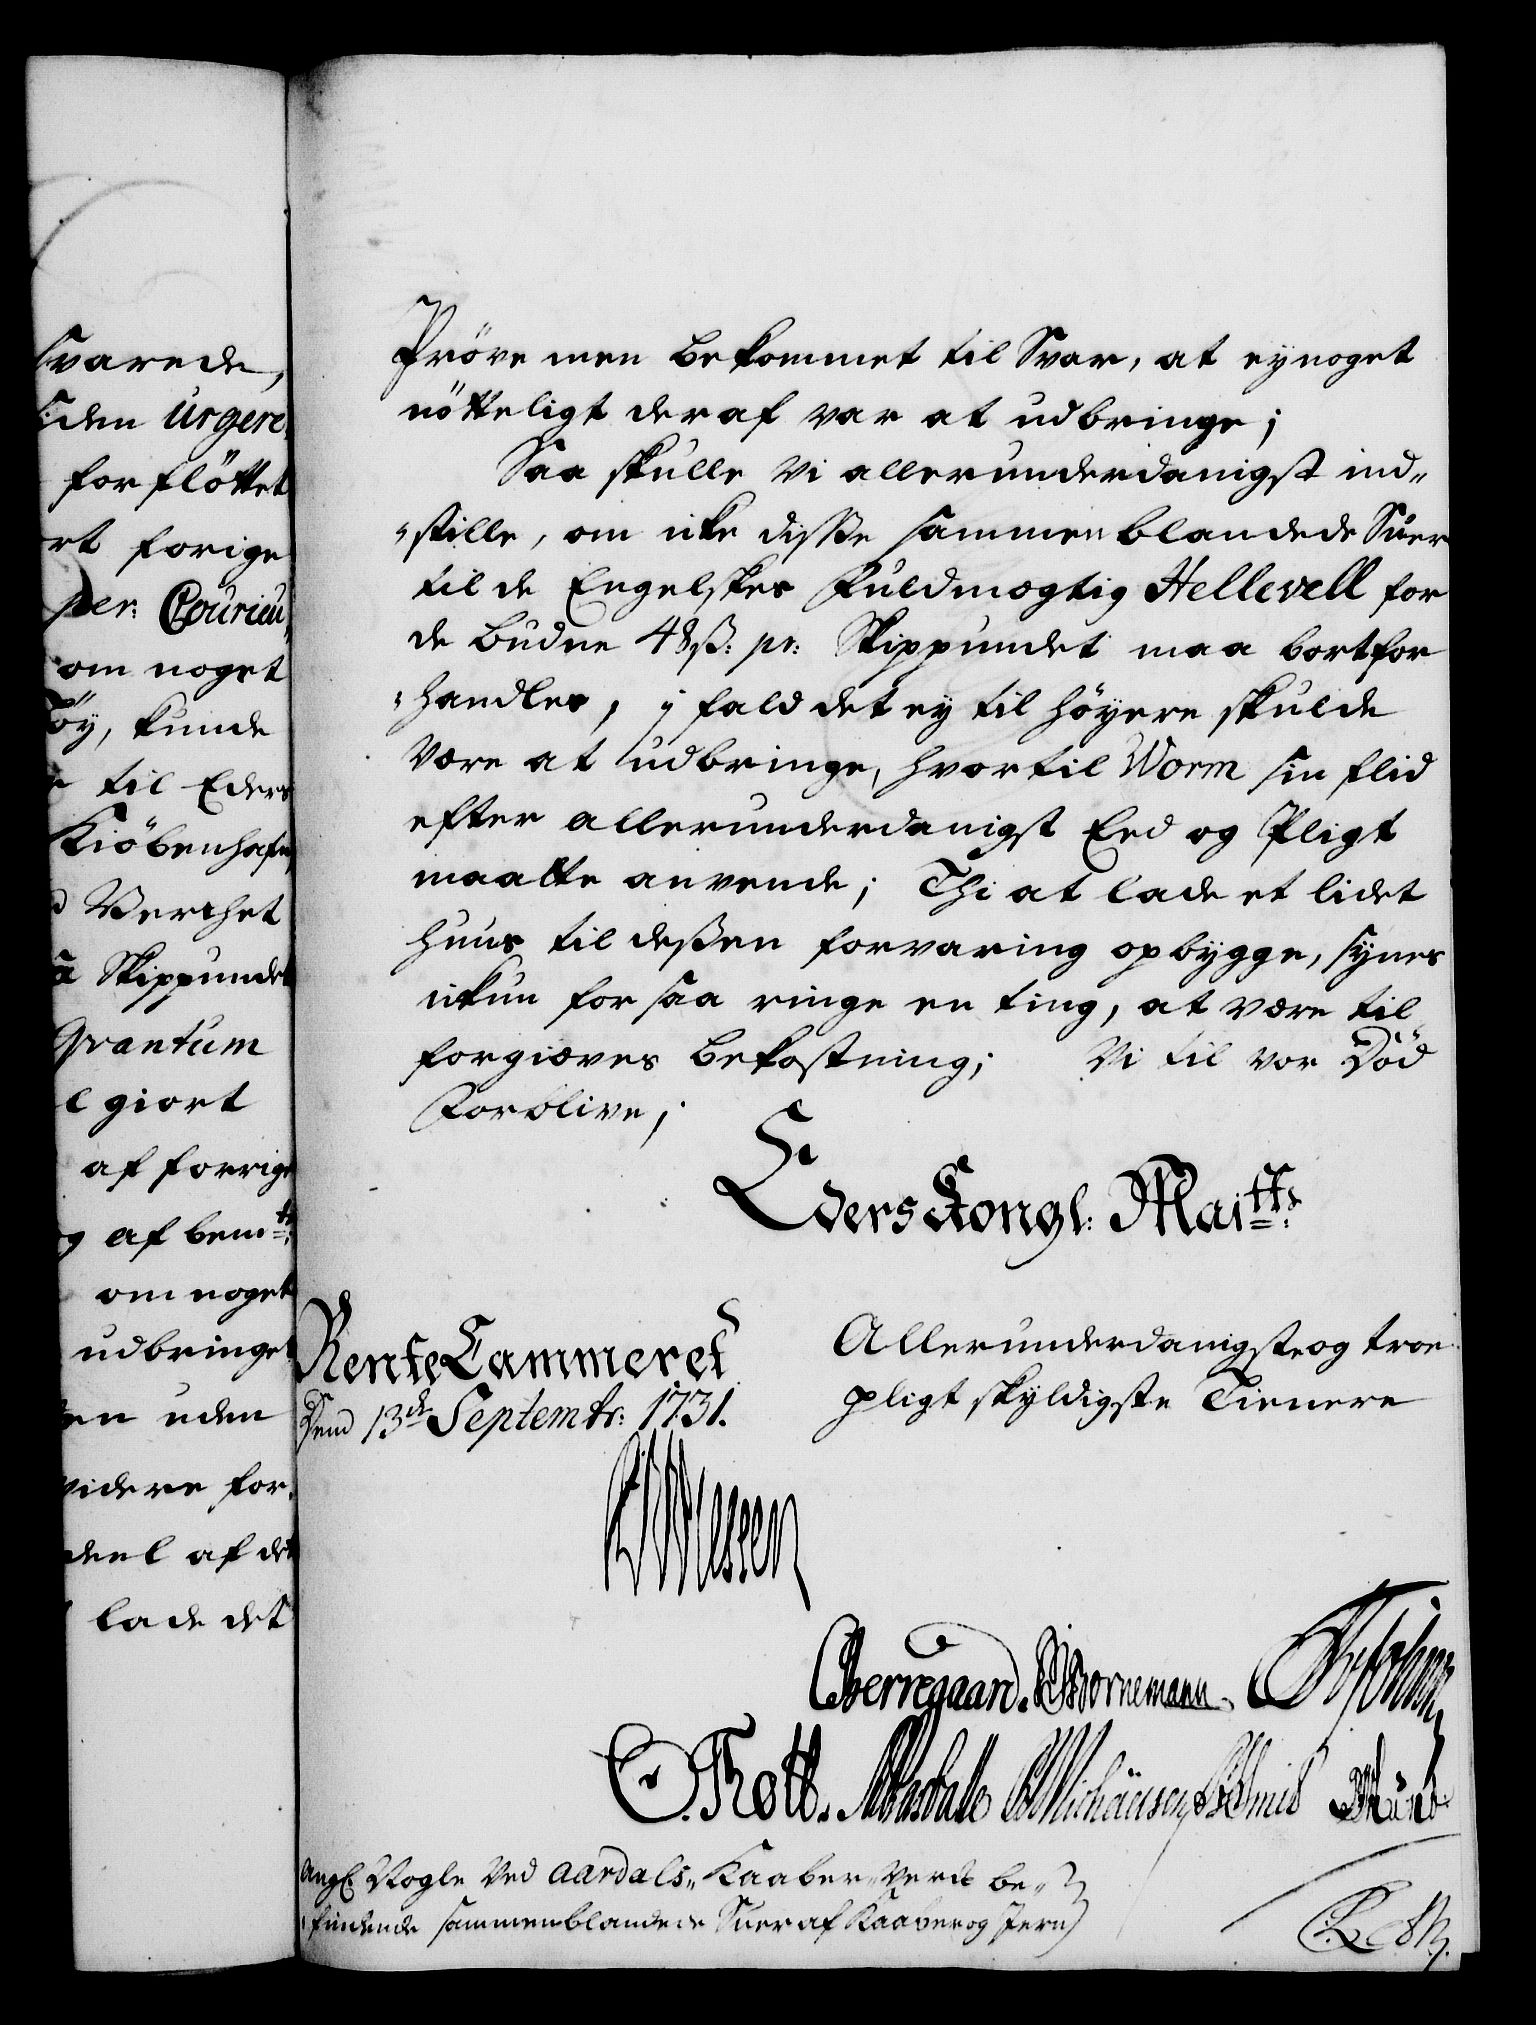 svarede,
siden urgere
forfløttet
rt forige
per: Courieu
om noget
Töy, kunde
til Eders
Kiöbenhafn
Verchet
a Skippundet
Qvantum
l giort
af forrige
og af bemte:
om noget
udbringet
en uden
videre for
deel af det
lade det
Pröve men bekommet til Svar, at ey noget
nötteligt deraf var at udbringe;
Saa skulle Vi allerunderdanigst ind„
„stille, om icke disse sammenblandede Suer
til de Engelskes Fuldmægtig Hellevell for
de budne 4 pr: Skippundet maa bortfor
„handles, i fald det ey til höyere skulde
Være at udbringe, hvortil Worm sin flid
efter allerunderdanigst Eed og Pligt
maatte anvende; Thi at lade et lidet
huus til deßen forvaring opbygge, synes
ickun for saa ringe en ting, at være til
forgiæves bekostning; Vi til vor Död
Forblive;
Eders Kongl: Maitts:
Rente Cammeret
Dend 13de Septembr: 1731.
Allerunderdanigste og troe
pligt skyldigste Tienere
Berregaard. Bornemann.
C. Thott.
angl. Nogle Ved Aardals„ Kaaber„ Verck be„
„findende sammenblandede Suer af Kaaber og Jern)